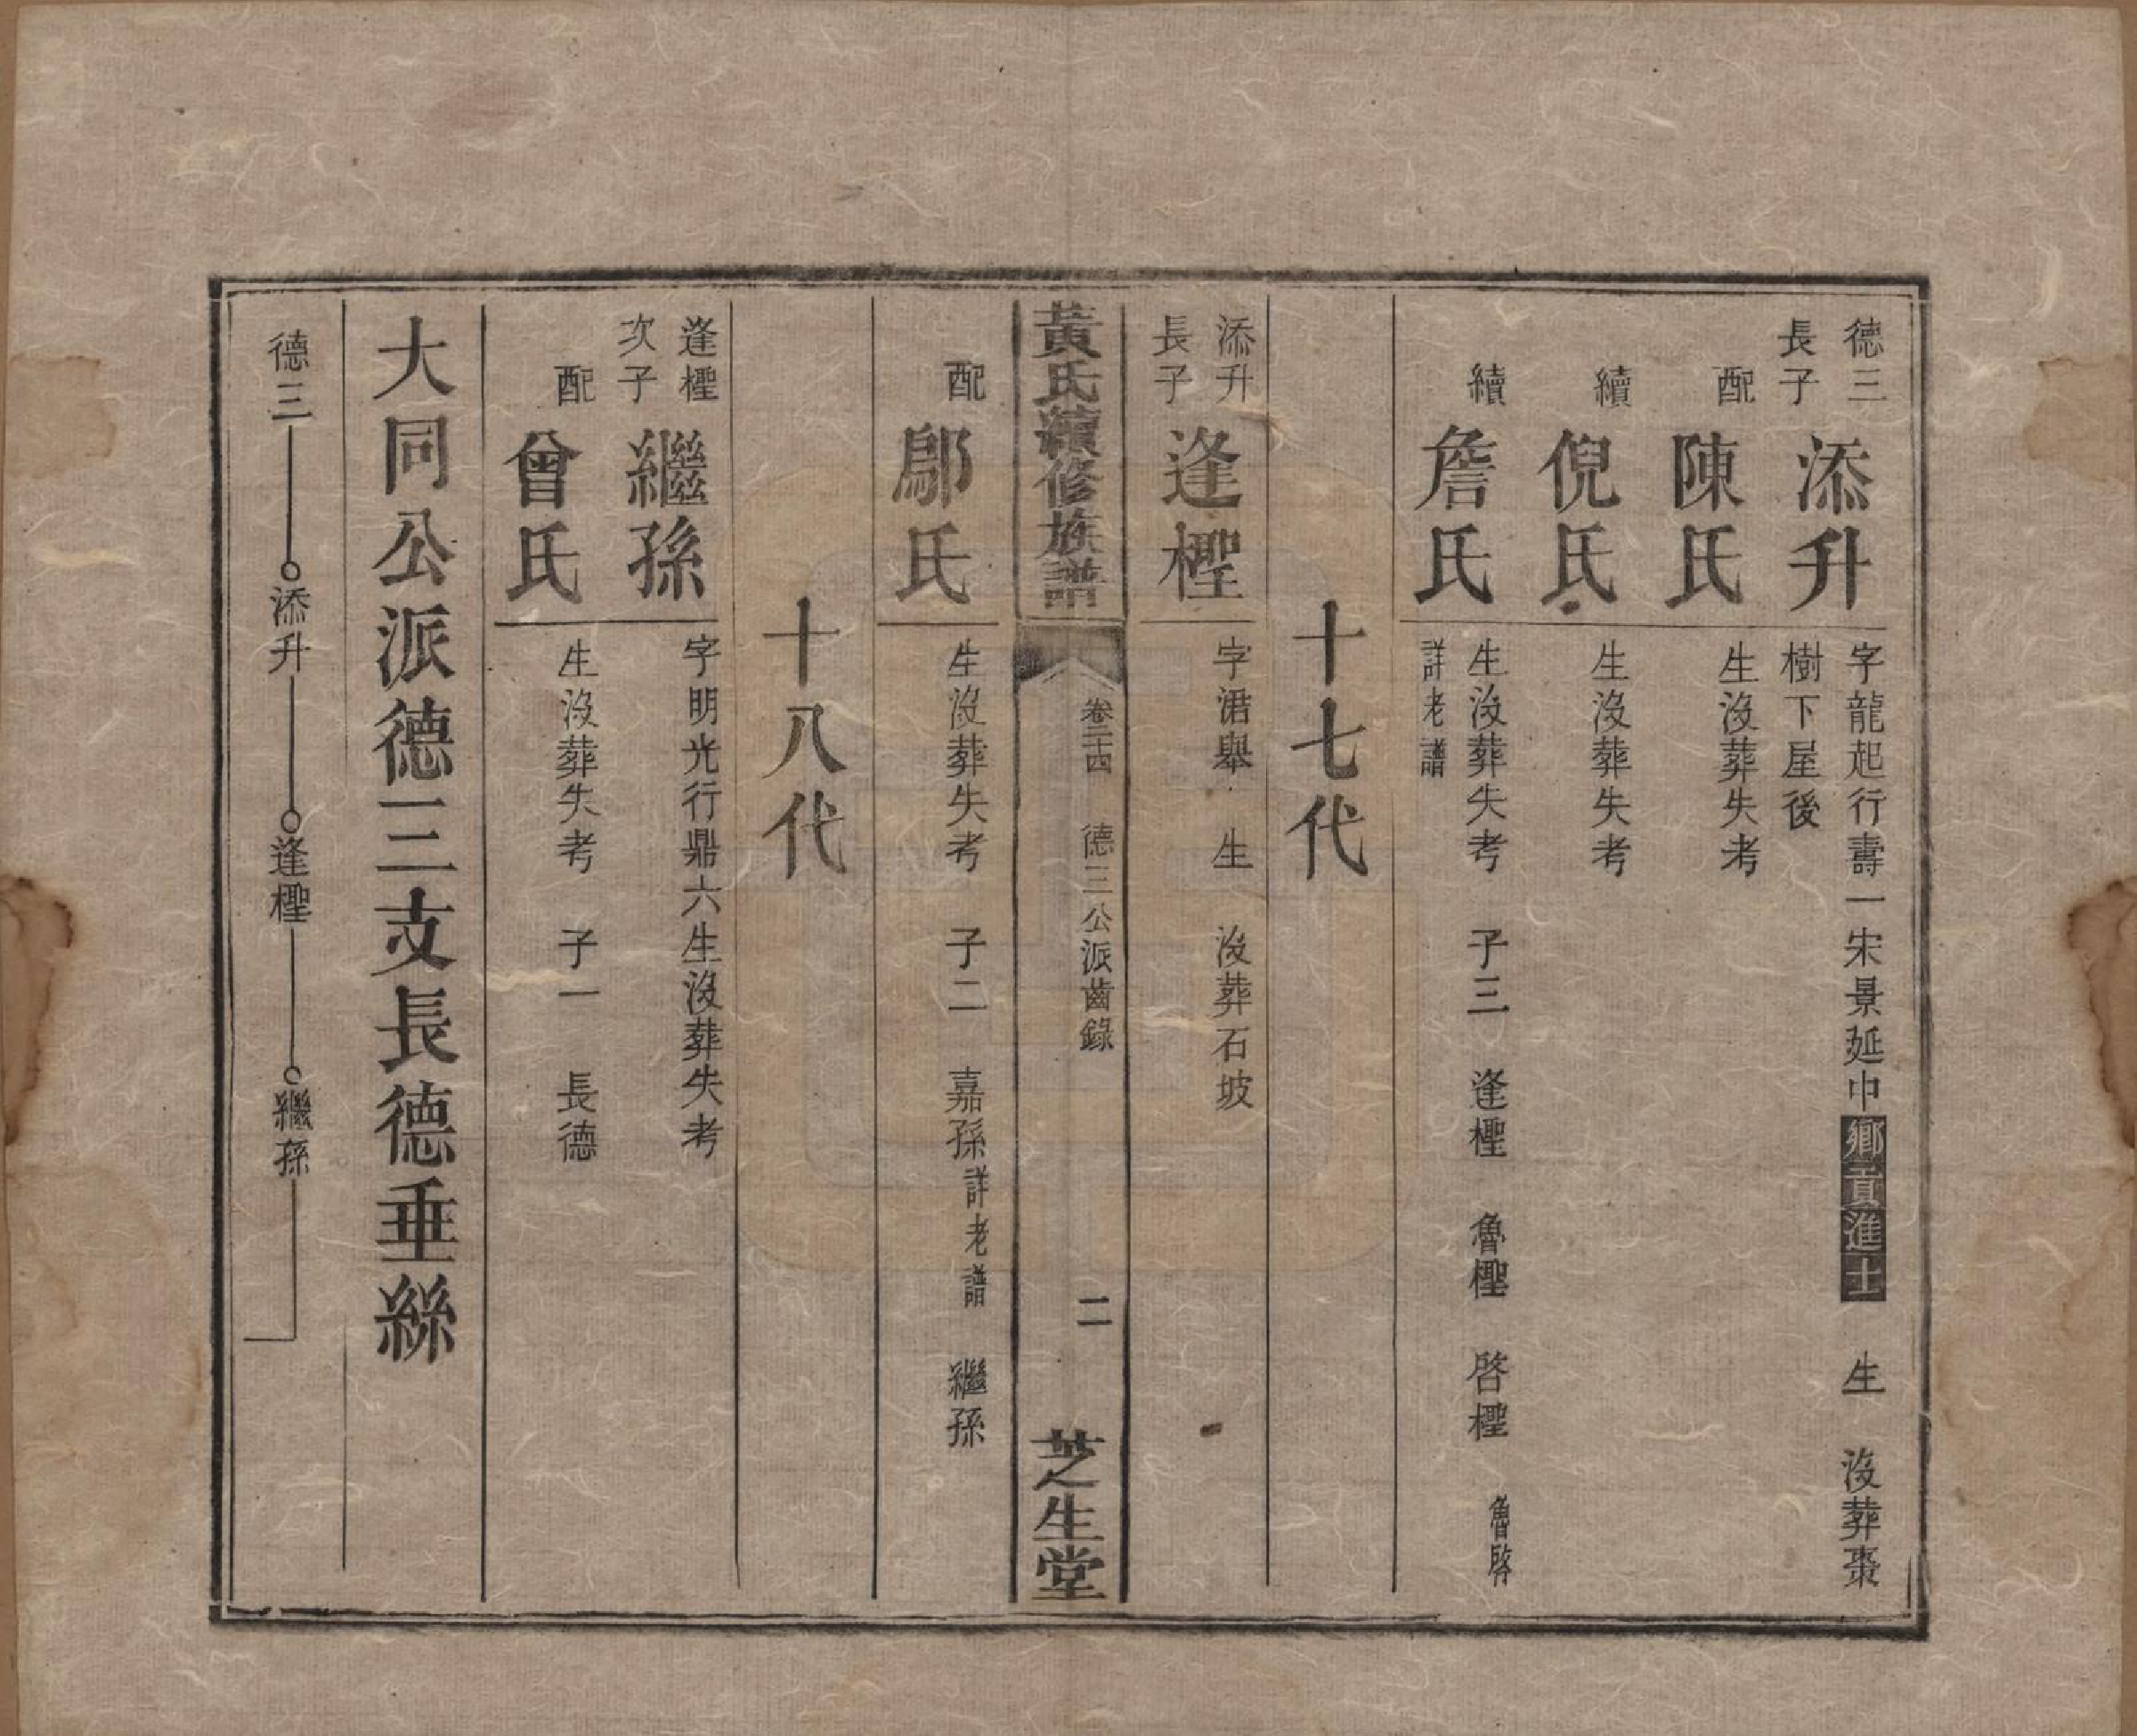 德三
長子
添升
字龍起行壽一宋景延中鄉貢進士　生　沒葬棗
樹下屋後
配
陳氏
生沒葬失考
續
倪氏
生沒葬失考
續
詹氏
生沒葬失考　子三　逢檉　魯檉　啓檉　魯啓
詳老譜
十七代
添升
長子
逢檉
字涒舉　生　沒葬石坡
黃氏續修族譜
卷二十四　德三公派齒錄　二
芝生堂
配
鄔氏
生沒葬失考　子二　嘉孫詳老譜　繼孫
十八代
逢檉
次子
繼孫
字明光行鼎六生沒葬失考
配
曾氏
生沒葬失考　子一　長德
大同公派德三支長德垂絲
德三　添升　逢檉　繼孫